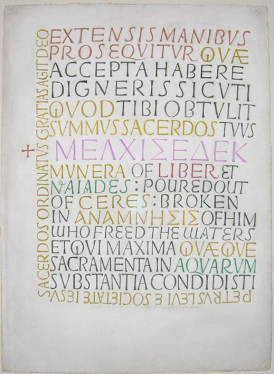 EXTENSIS MANIBUS
PROSEQVITVR QVÆ
ACCEPTA HABERE
DIGNERIS SICVTI
QVOD TIBI OBTVLIT
SVMMVS SACERDOS TVVS
ΜΕΛΧΙΣΕΔΕΚ
MVNERA OF LIBER ET
NAIADES : POURED OUT
OF CERES : BROKEN
IN ΑΝΑΜΝΗΣΙΣ OF HIM
WHO FREED THE WATERS
ET QVI MAXIMA QVÆQVE
SACRAMENTA IN AQVARVM
SVBSTANTIA CONDIDISTI
PETRVS LEVI E SOCIETATE IESV
SACERDOS ORDINATVS GRATIAS AGIT DEO